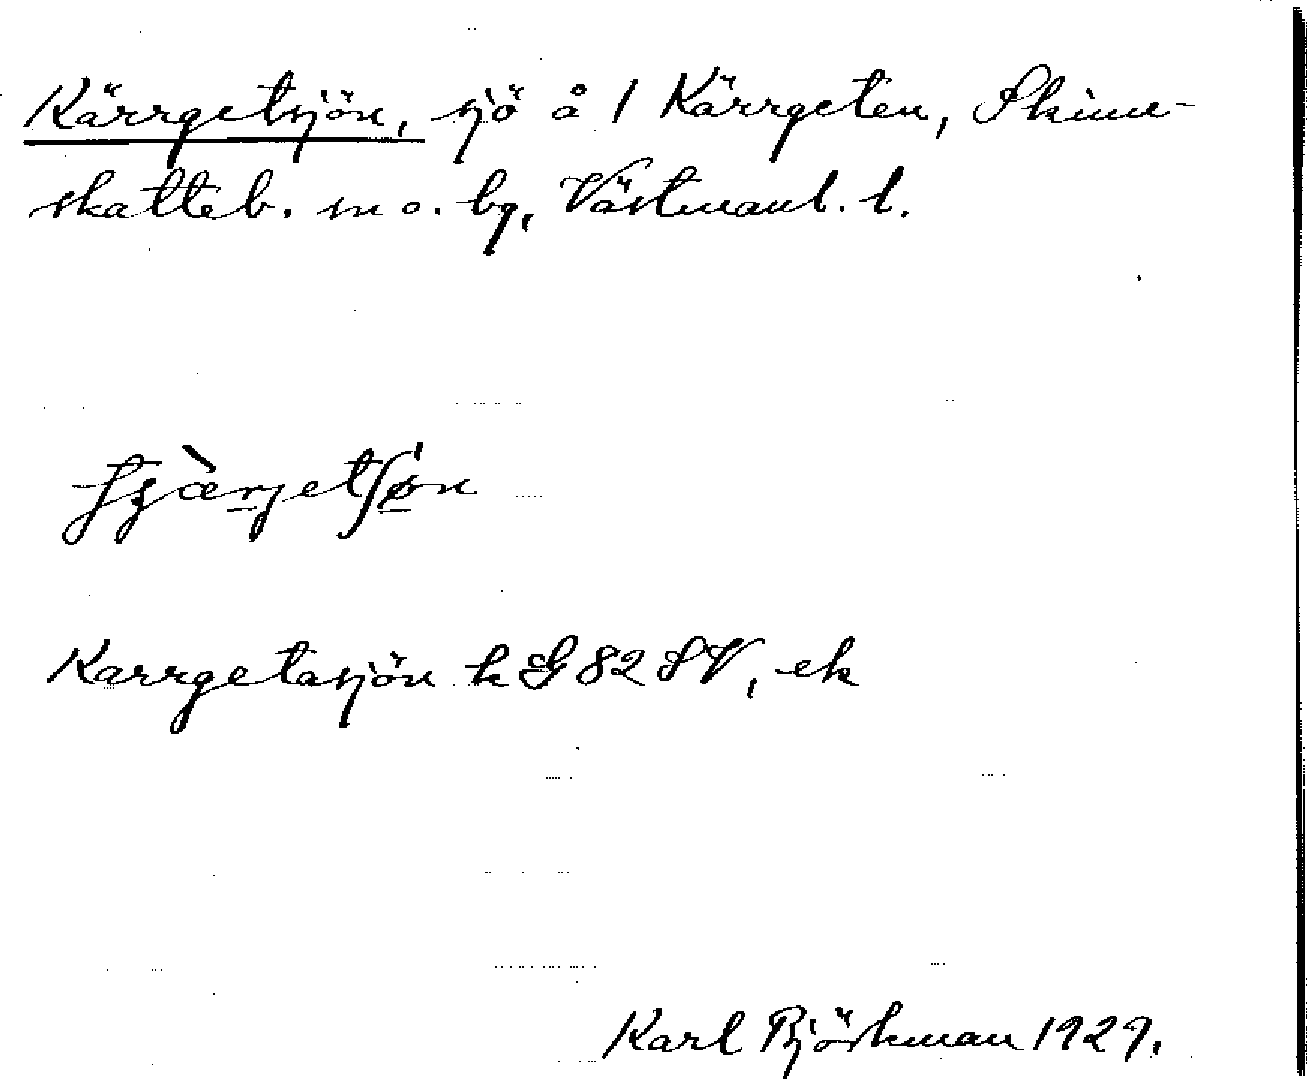 Kärrgetsjön, sjö å 1 Kärrgeten, Skinn-
skatteb. sn o. bg, Västmanl. l.
Karrgetasjön k G 82 SV, ek
Karl Björkman 1929.